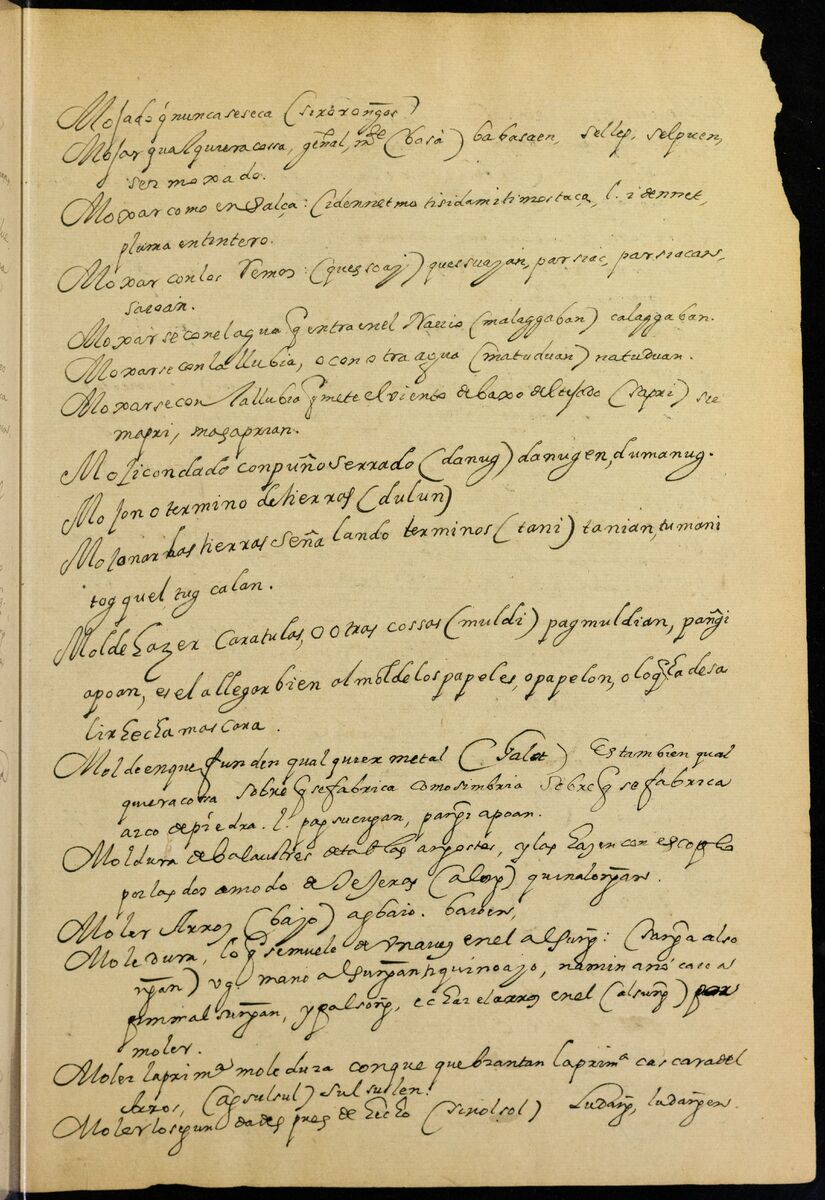 Mojado q̃ nunca se seca (siroron͠gos)
Mojar qualquiera cossa, gen͠al, mte (basà) babasaen, sellep, selpuen,
ser moxado.
Moxar como en salça: (idennet mo ti sida mi ti mostaça, l. idennet,
pluma en tintero.
Moxar con los remos: (quessoaj) quessuajan, parsiac, parsiacan,
Moxarse con el agua q̃ entra en el Nauio (malaggaban) calaggaban.
Moxarse con la llubia, o con otra agua (matuduan) natuduan.
Moxarse con la llubia q̃ mete el viento debaxo del tejado (sapri) sie
mapri, masaprian.
Mojicon dado con pun͠o serrado (danug) danugen, dumanug.
Mojon o termino de tierras (dulun)
Mojonar las tierras sen͠alando terminos (tani) tanian, tumani
tog quel, tug calan.
Molde hazer caratulas, o otras cossas (muldi) pagmuldian, pan͠gi
apoan, es el allegar bien al molde los papeles, o papelon, o lo q̃ ha de sa
lir hecha mascara.
Molde en que funden qualquier metal ( ) Es tambien qual
quiera cossa sobre q̃ se fabrica como simbria sobre q̃ se fabrica
arco de piedra. l. pan͠gi apoan.
Moldura de balaustres de tablas an͠gostas, y las hazen con escoplo
por las dos a modo de
Moler Arros (bajo) agbaio. baioen,
Moledura, lo q̃ se muele de vna ves en el alsun͠g:
mano alsun͠gan
alsun͠gan, y palson͠g, echar el arros en el (alsun͠g) por
moler.
Moler la prima moledura con que quebrantan la prima cascara del
Arros, (agsulsul) sulsulen.
Moler lo segun da des pues de hecho (sinolsol) Ludan͠g, ludan͠gen.